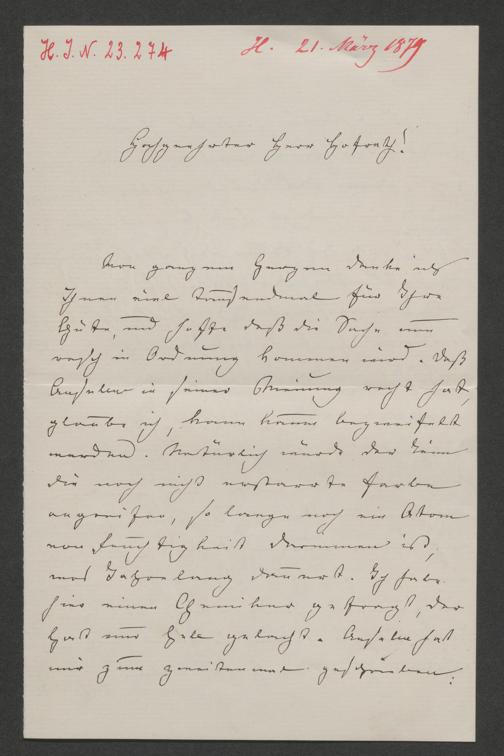 H. I. N. 23.274
H. 21. März 1879
Hochgeehrter Herr Hofrath!
Von ganzem Herzen danke ich
Ihnen viel tausendmal für Ihre
Güte, und hoffe daß die Sache nun
rasch in Ordnung kommen wird. Daß
Anselm in seiner Meinung recht hat,
glaube ich, kann kaum bezweifelt
werden. Natürlich würde der
die noch nicht erstarrte Farbe
angreifen, so lange noch ein Atom
von Feuchtigkeit darinnen ist,
was Jahrelang dauert. Ich habe
hier einen Chemiker gefragt, der
hat nur gelacht. Anselm hat
mir zum zweitenmal geschrieben: